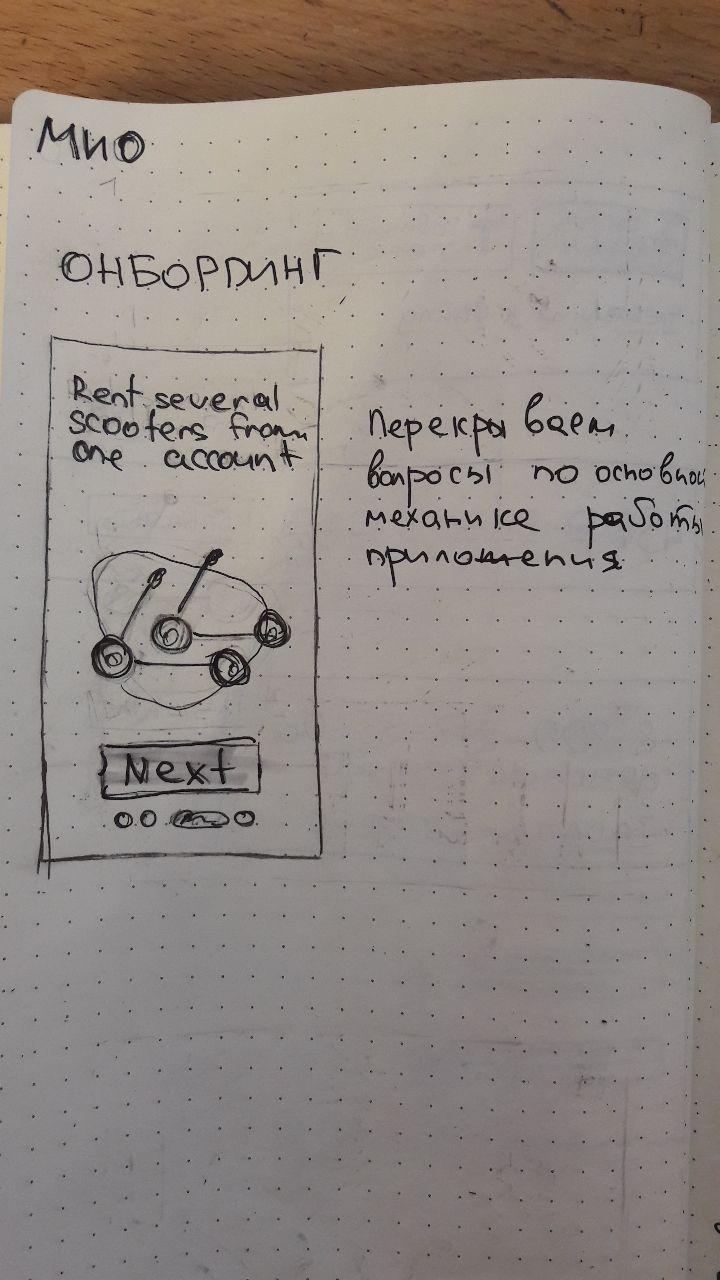 МИО
ОНБОРДИНГ
Rent several
scooters from
one account
Next
Перекрываем
вопросы по основной
механике работы
приложения